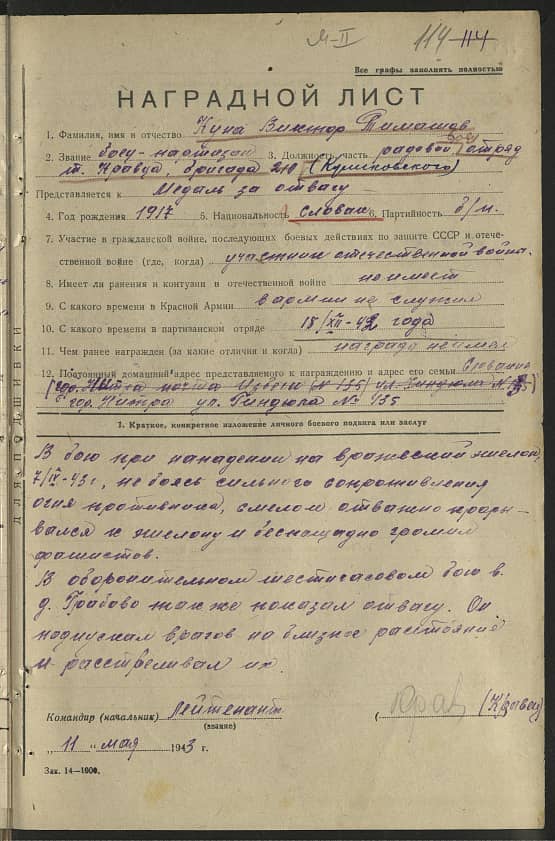 М-II 114 114
Все графы заполнять полностью
НАГРАДНОЙ ЛИСТ
1. Фамилия, имя и отчество Купа Виктор Тимашов
2. Звание боец-партизан 3. Должность, часть рядовой отряд
т. Кравца, бригада 210 (Куликовского)
Представляется к Медаль за отвагу
4. Год рождения 1917 5. Национальность Словак 6. Партийность б/п.
7. Участие в гражданской войне, последующих боевых действиях по защите СССР и отече-
ственной войне (где, когда) участник отечественной война.
8. Имеет ли ранения и контузии в отечественной войне не имеет
9. С какого времени в Красной Армии в армии не служил
10. С какого времени в партизанском отряде 15/XII-42 года
11. Чем ранее награжден (за какие отличия и когда) награда не имел
12. Постоянный домашний адрес представляемого к награждению и адрес его семьи Словакия
гор. Нитра ул. № 435
I. Краткое, конкретное изложение личного боевого подвига или заслуг
В бою при нападении на вражеский эшелон,
7/IV-43 г, не боясь сильного сопроживления
огня противника, смелом отважно проры-
вался к эшелону и беспощадно громил
фашистов.
В оборонительном шестичасовом бою в
д. Грабово так же показал отвагу. Он
подпускал врагов на близкое расстояние
и расстреливал их.
Командир (начальник) лейтенант (Кравец)
(звание)
„11„ мая 1943 г.
Зак. 14—1000.
ДЛЯ ПОДШИВКИ